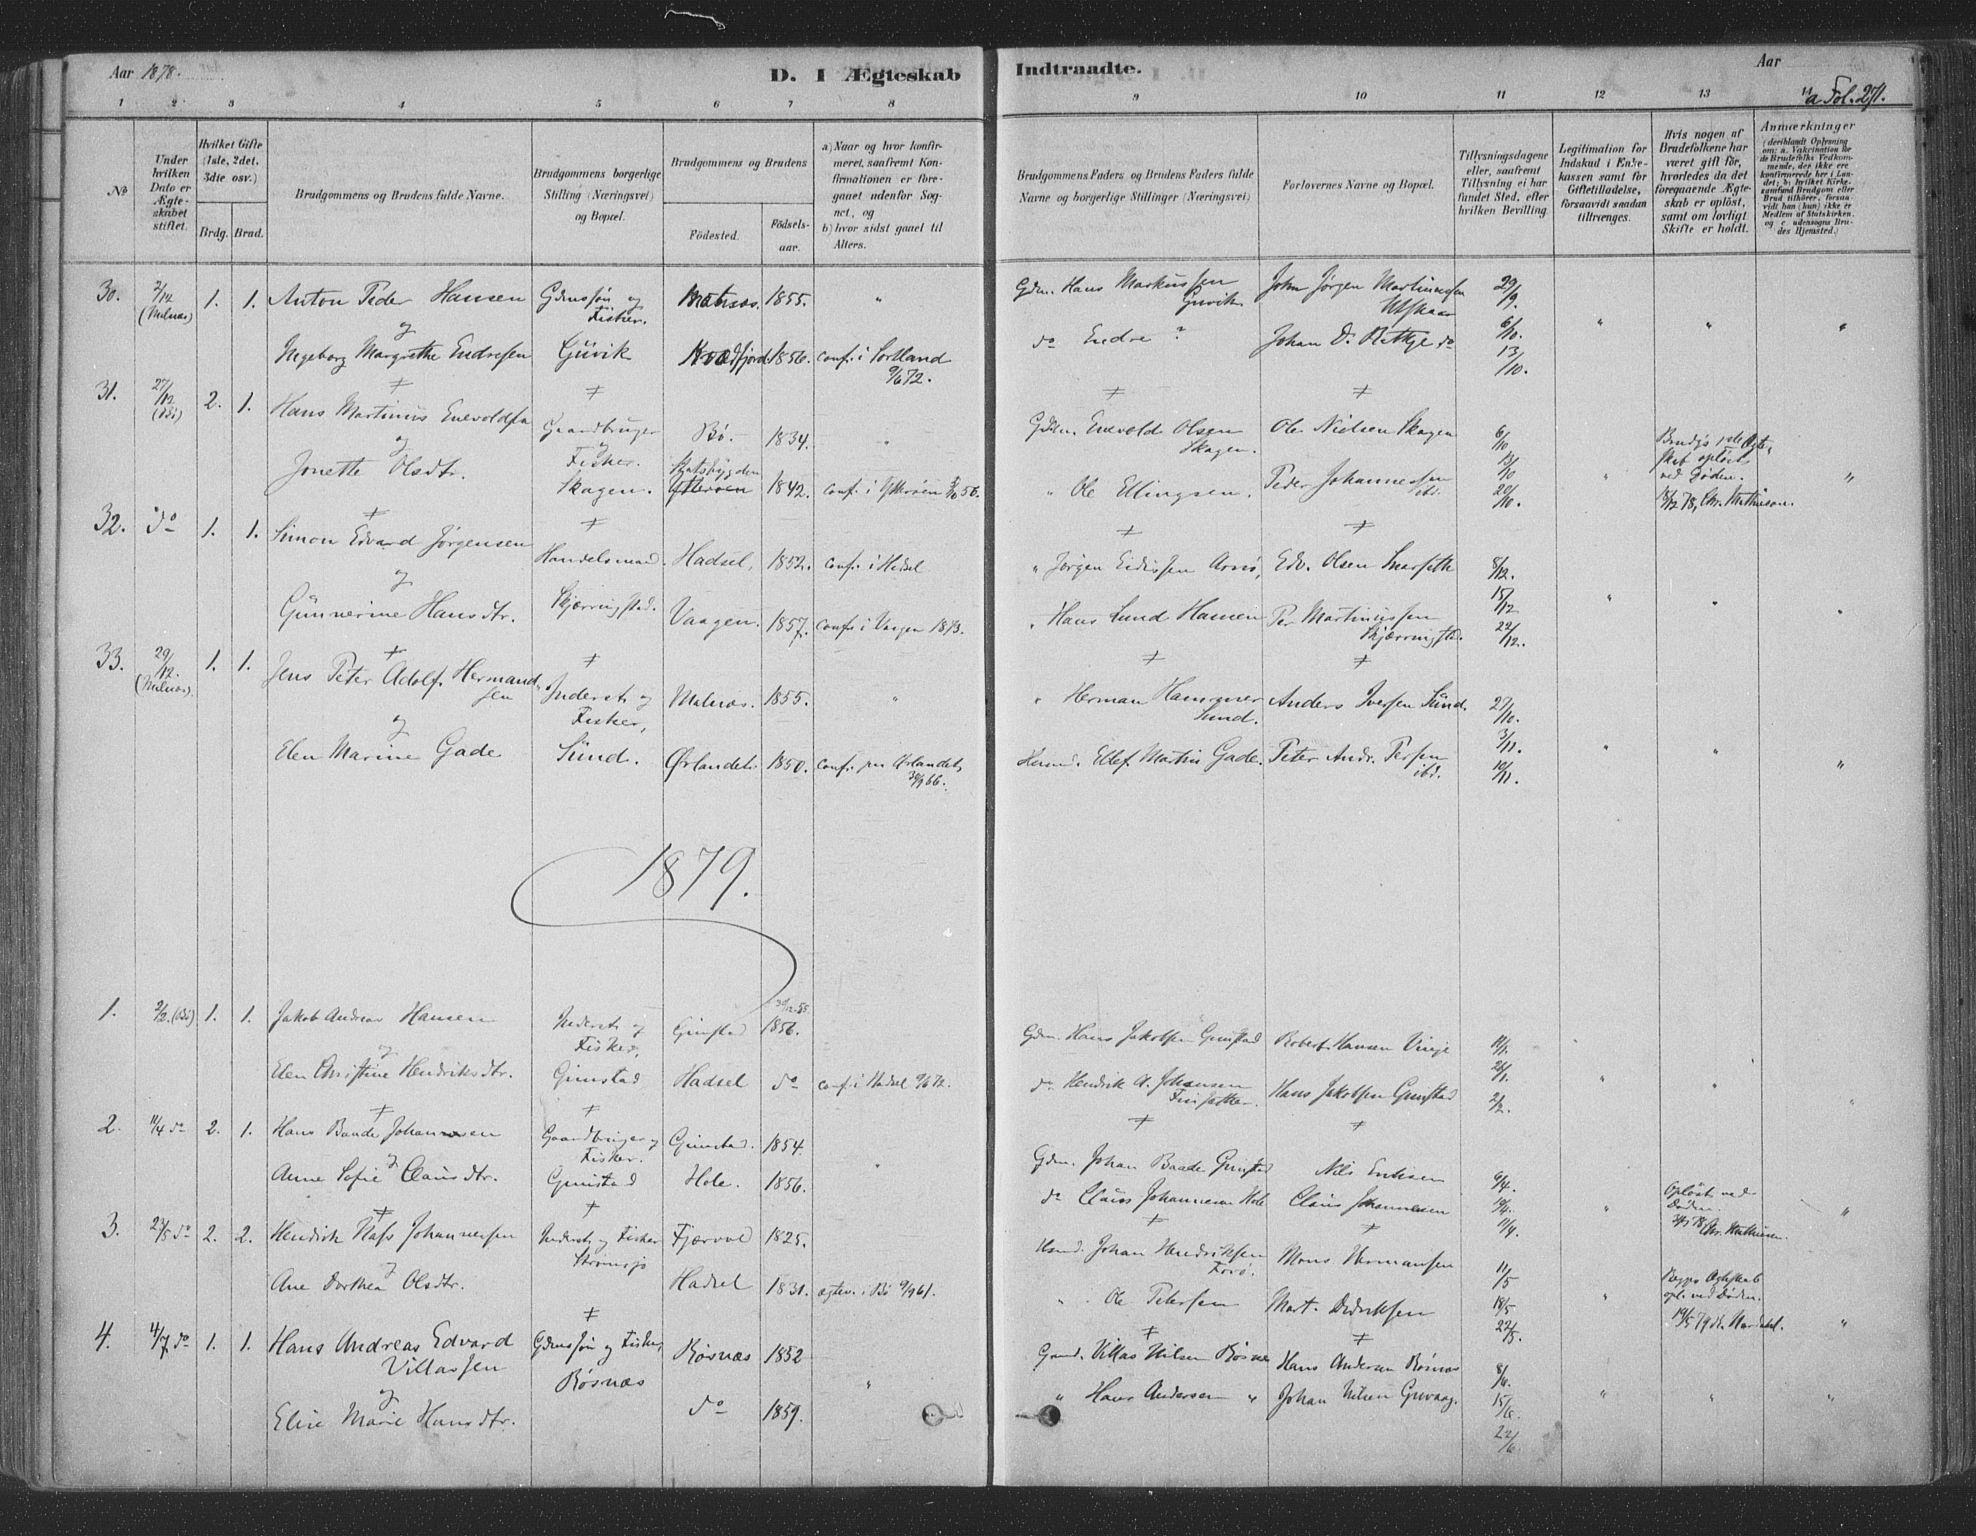 Aar 1878.
D. I Ægteskab
Indtraadte.
Aar
a Fol. 271.
1 2 3 4 5 6 7 8 9 10 11 12 13 14
No
Under hvilken Dato er Ægteskabet stiftet.
Hvilket Gifte (1ste, 2det, 3die osv.)
Brdg. Brud.
Brudgommens og Brudens fulde Navne.
Brudgommens borgerlige Stilling (Næringsvei) og Bopæl.
Brudgommens og Brudens
Fødested.
Fødselsaar.
a) Naar og hvor konfirmeret, saafremt Konfirmationen er foregaaet udenfor Sognet, og
b) hvor sidst gaaet til Alters.
Brudgommens Faders og Brudens Faders fulde Navne og borgerlige Stillinger (Næringsvei)
Forlovernes Navne og Bopæl.
Tillysningsdagene eller, saafremt Tillysning ei har fundet Sted, efter hvilken Bevilling.
Legitimation for Indskud i Enkekassen samt for Giftetilladelse, forsaavidt saadan tiltrænges.
Hvis nogen af Brudefolkene har været gift før, hvorledes da det foregaaende Ægteskab er opløst, samt om lovligt Skifte er holdt.
Anmærkninger (deriblandt Oplysning om: a. Vakcination for de Brudefolks Vedkommende, der ikke ere konfirmerede her i Landet; b. hvilket Kirkesamfund Brudgom eller Brud tilhører, forsaavidt han (hun) ikke er Medlem af Statskirken, og c. udensogns Brudes Hjemsted.)
30. 2/12 (Malnæs) 1. 1. Anton Peder Hansen Gdmssøn og Fisker. Malnæs. 1855. "
Gdm. Hans Markussen Guvik John Jørgen Martinussen 29/9.
og
Ingeborg Margrethe Endresen Guvik Kvædfjord 1856. conf. i Sortland 9/6 72.
do Endre ? Johan D. Rithge do 6/10. 13/10. " " "
31. 27/12 (Bø) 2. 1. Hans Martinus Enevoldsen Gaardbruger og Fisker. Bø. 1834. "
Gdm. Enevold Olsen Skagen. Ole Nielsen Skagen 6/10
Brudgs 1ste Ægteskab opløst ved Døden.
og
Jonette Olsdtr. Skagen. Ytterøen 1842. conf. i Ytterøen 56.
" Ole Ellingsen. Peder Johannessen ibd. 13/10 20/10. " 18/12 78, Chr. Mathiesen. "
32. do 1. 1. Simon Edvard Jørgensen Handelsmand. Hadsel, 1852. conf. i Hadsel
" Jørgen Eidissen Arnø, Edv. Olsen 8/12.
og
Gunnerine Hansdtr. Skjærringstad. Vaagen. 1857. conf. i Vaagen 1873.
" Hans Lund Hansen Per Martinussen Skjærringstad. 15/12 22/12. " " "
33. 29/12. (Malnæs) 1. 1. Jens Peter Adolf Hermandsen Inderst og Fisker, Malnæs. 1855. "
" Herman Sund. Anders Iversen Sund. 27/10.
og
Elen Marine Gade Sund. Ørlandet. 1850. conf. paa Ørlandet 66.
Husmd. Ellef Martin Gade. Peter Andr. Persen ibd. 3/11. 10/11. " " "
1879.
1. 2/2. (Bø) 1. 1. Jakob Andreas Hansen Inderst og Fisker, Gimstad 30/12 55 1856.
Gdm. Hans Jakobsen Gimstad Robert Hansen Vinje
og
Elen Christine Hendriksdtr. Gimstad Hadsel do conf. i Hadsel 9/6 72.
do Hendrik A. Johansen Hans Jakobsen Gimstad 2/2. " " "
2. 11/4 do 2. 1. Hans Baade Johannesen Gaardbruger og Fisker. Gimstad. 1854.
Gdm. Johan Baade Gimstad Nils Eriksen 6/4.
og
Anne Sofie Clausdtr. Gimstad Hole. 1856. "
do Claus Johannesen Hole Claus Johannesen 11/4. " Opløst ved Døden. Chr. Mathiesen. "
3. 23/5 do 2. 2. Hendrik Johannessen Inderst og Fisker Strømsjø Fjærvol 1825.
Husmd. Johan Hendriksen Mons Hermansen 11/5
og
Ane Dorthea Olsdtr. Hadsel 1831. ægtev. i Bø 9/9 61.
" Ole Petersen Mart. Didriksen 18/5 22/5. " Begges Ægteskab opl. ved Døden. 19/5 79 "
4. 4/7 do 1. 1. Hans Andreas Edvard Villassen Gdmssøn og Fisker, Røsnæs 1852
Gaard. Villas Nilsen Røsnæs Hans Andersen Røsnæs 8/6.
og
Elise Marie Hansdtr. Røsnæs do 1859. "
" Hans Andersen " Johan Nilsen 15/6. 22/6 " " "